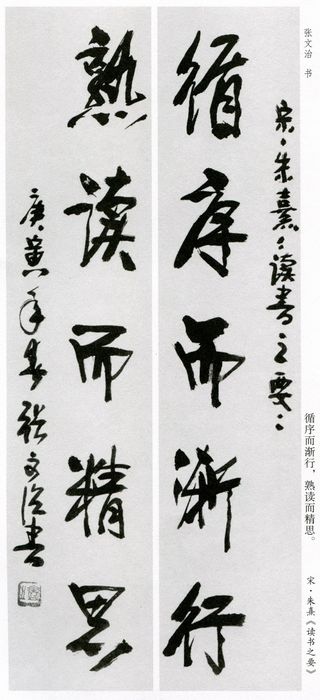 张文治 书
宋·朱熹《读书之要》
循序而渐行
熟读而精思
庚寅年春张文治书
循序而渐行，熟读而精思。
宋·朱熹《读书之要》